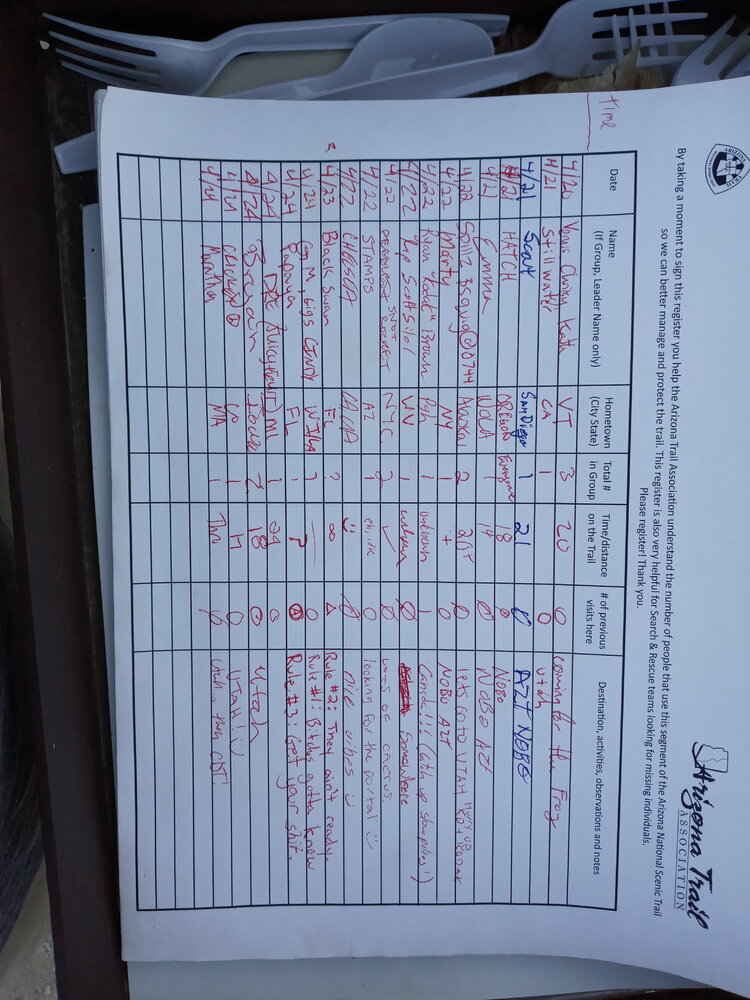 ARIZONA
TRAIL
Arizona Trail
ASSOCIATION
By taking a moment to sign this register you help the Arizona Trail Association understand the number of people that use this segment of the Arizona National Scenic Trail
so we can better manage and protect the trail. This register is also very helpful for Search & Rescue teams looking for missing individuals.
Please register! Thank you.
TIME
Date Name (If Group, Leader Name only) Hometown (City State) Total # in Group Time/distance on the Trail # of previous visits here Destination, activities, observations and notes
4/20 Chunky VT 3 20 0 coming for the Frog
4/21 Stillwater CA 1 0 Utah
4/21 Scout San Diego 1 21 0 AZT NOBO
4/21 HATCH OREGON Everyone 18 0 NOBO
4/21 Emma NOLA 1 14 0 NOBO AZT
4/22 Spillz 2 0 lets go to UTAH Hurry up
4/22 Marty NY 1 + 0 NOBO AZT
4/22 Ryan Brown Pgh 1 unknown 1 Camille!!! (Catch up
4/22 Rip Scott WV 1 unknown 0 Somewhere
4/22 SNOT ROCKET NYC 2 ✓ 0 LOTS OF CACTUS
4/22 STAMPS AZ 1 eh, idk 0 looking for the portal :)
4/22 CHELSEA LA, CA :) 0 nice vibes :)
4/23 Black Swan FL ? ∞ Δ Rule #2: They ain't ready.
4/24 G M, Gigs CINDY WI/GA ? — 0 Rule #1: Bitches gotta know
4/24 Papaya FL 1 ? Rule #3: Get your shit.
4/24 (Juicy Fruit) MI 1 0
4/24 Branden Iowa 2 18 0 Utah
4/24 1 17 0 UTAH! :)
4/24 Marathon MA 1 Thru 0 Utah.. then CDT!